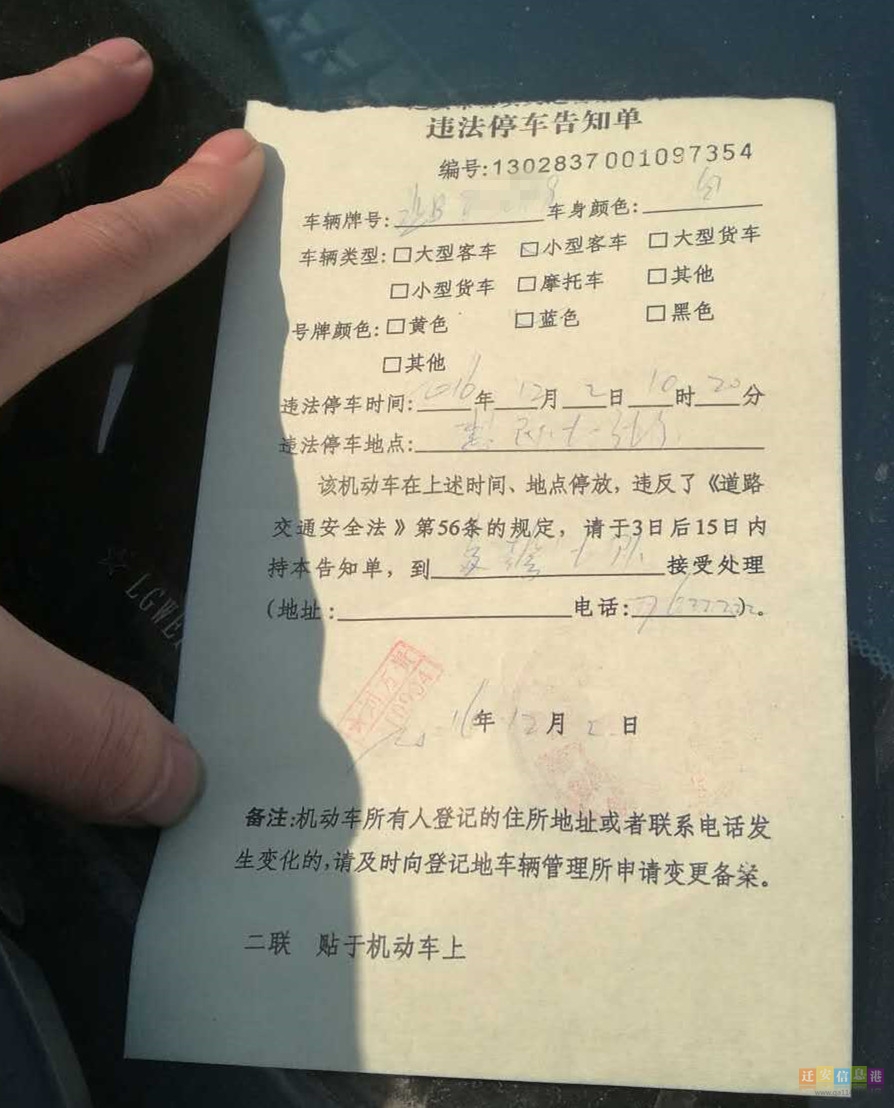 违法停车告知单
编号:1302837001097354
车辆牌号:冀B 车身颜色:白
车辆类型:□大型客车 ☑小型客车 □大型货车
□小型货车 □摩托车 □其他
号牌颜色:□黄色 ☑蓝色 □黑色
□其他
违法停车时间:2016年12月2日10时20分
违法停车地点:
该机动车在上述时间、地点停放，违反了《道路
交通安全法》第56条的规定，请于3日后15日内
持本告知单，到 接受处理
(地址: 电话: )。
2016年12月2日
备注:机动车所有人登记的住所地址或者联系电话发
生变化的,请及时向登记地车辆管理所申请变更备案。
二联 贴于机动车上
LGWE
迁安信息港